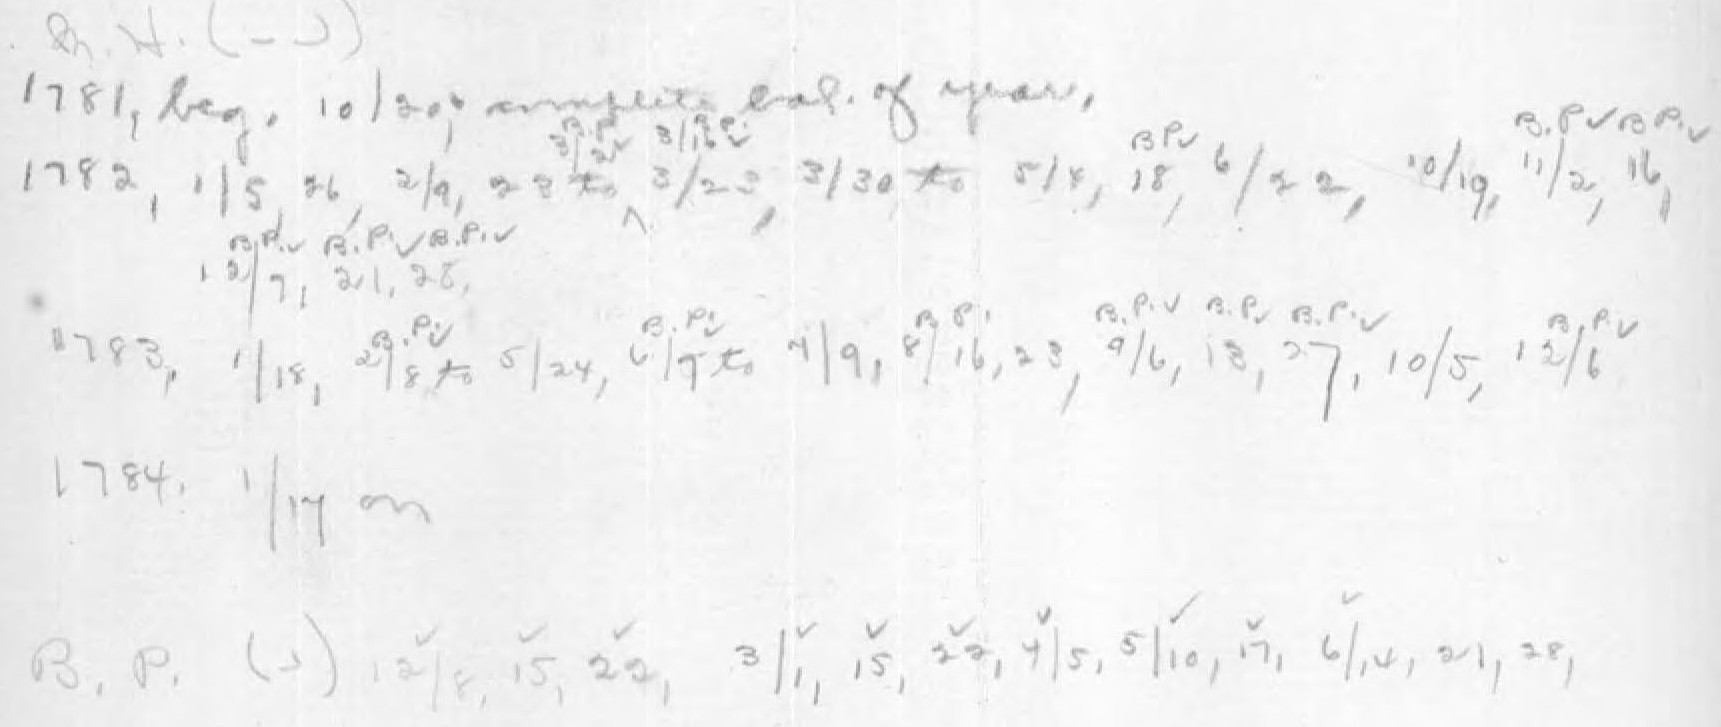 M. H. (- ✓)
1781, beg. 10/20, complete bal. of year,
B.P. B.P.
3/2✓ 3/16✓ B P✓ B.P✓ B P.✓
1782, 1/5, 26, 2/9, 23 to ^ 3/23, 3/30 to 5/4, 18, 6/22, 10/19, 11/2, 16,
B.P.✓ B.P.✓ B.P.✓
12/7, 21, 28,
B.P.✓ B.P.✓ B.P. B.P.✓ B.P.✓ B.P.✓ B.P.✓
1783, 1/18, 2/8 to 5/24, 6/7 to 7/9, 8/16, 23, 9/6, 13, 27, 10/5, 12/6
1784. 1/17 on
✓ ✓ ✓ ✓ ✓ ✓ ✓ ✓ ✓ ✓
B. P. (✓) 12/8, 15, 22, 3/1, 15, 22, 4/5, 5/10, 17, 6/14, 21, 28,